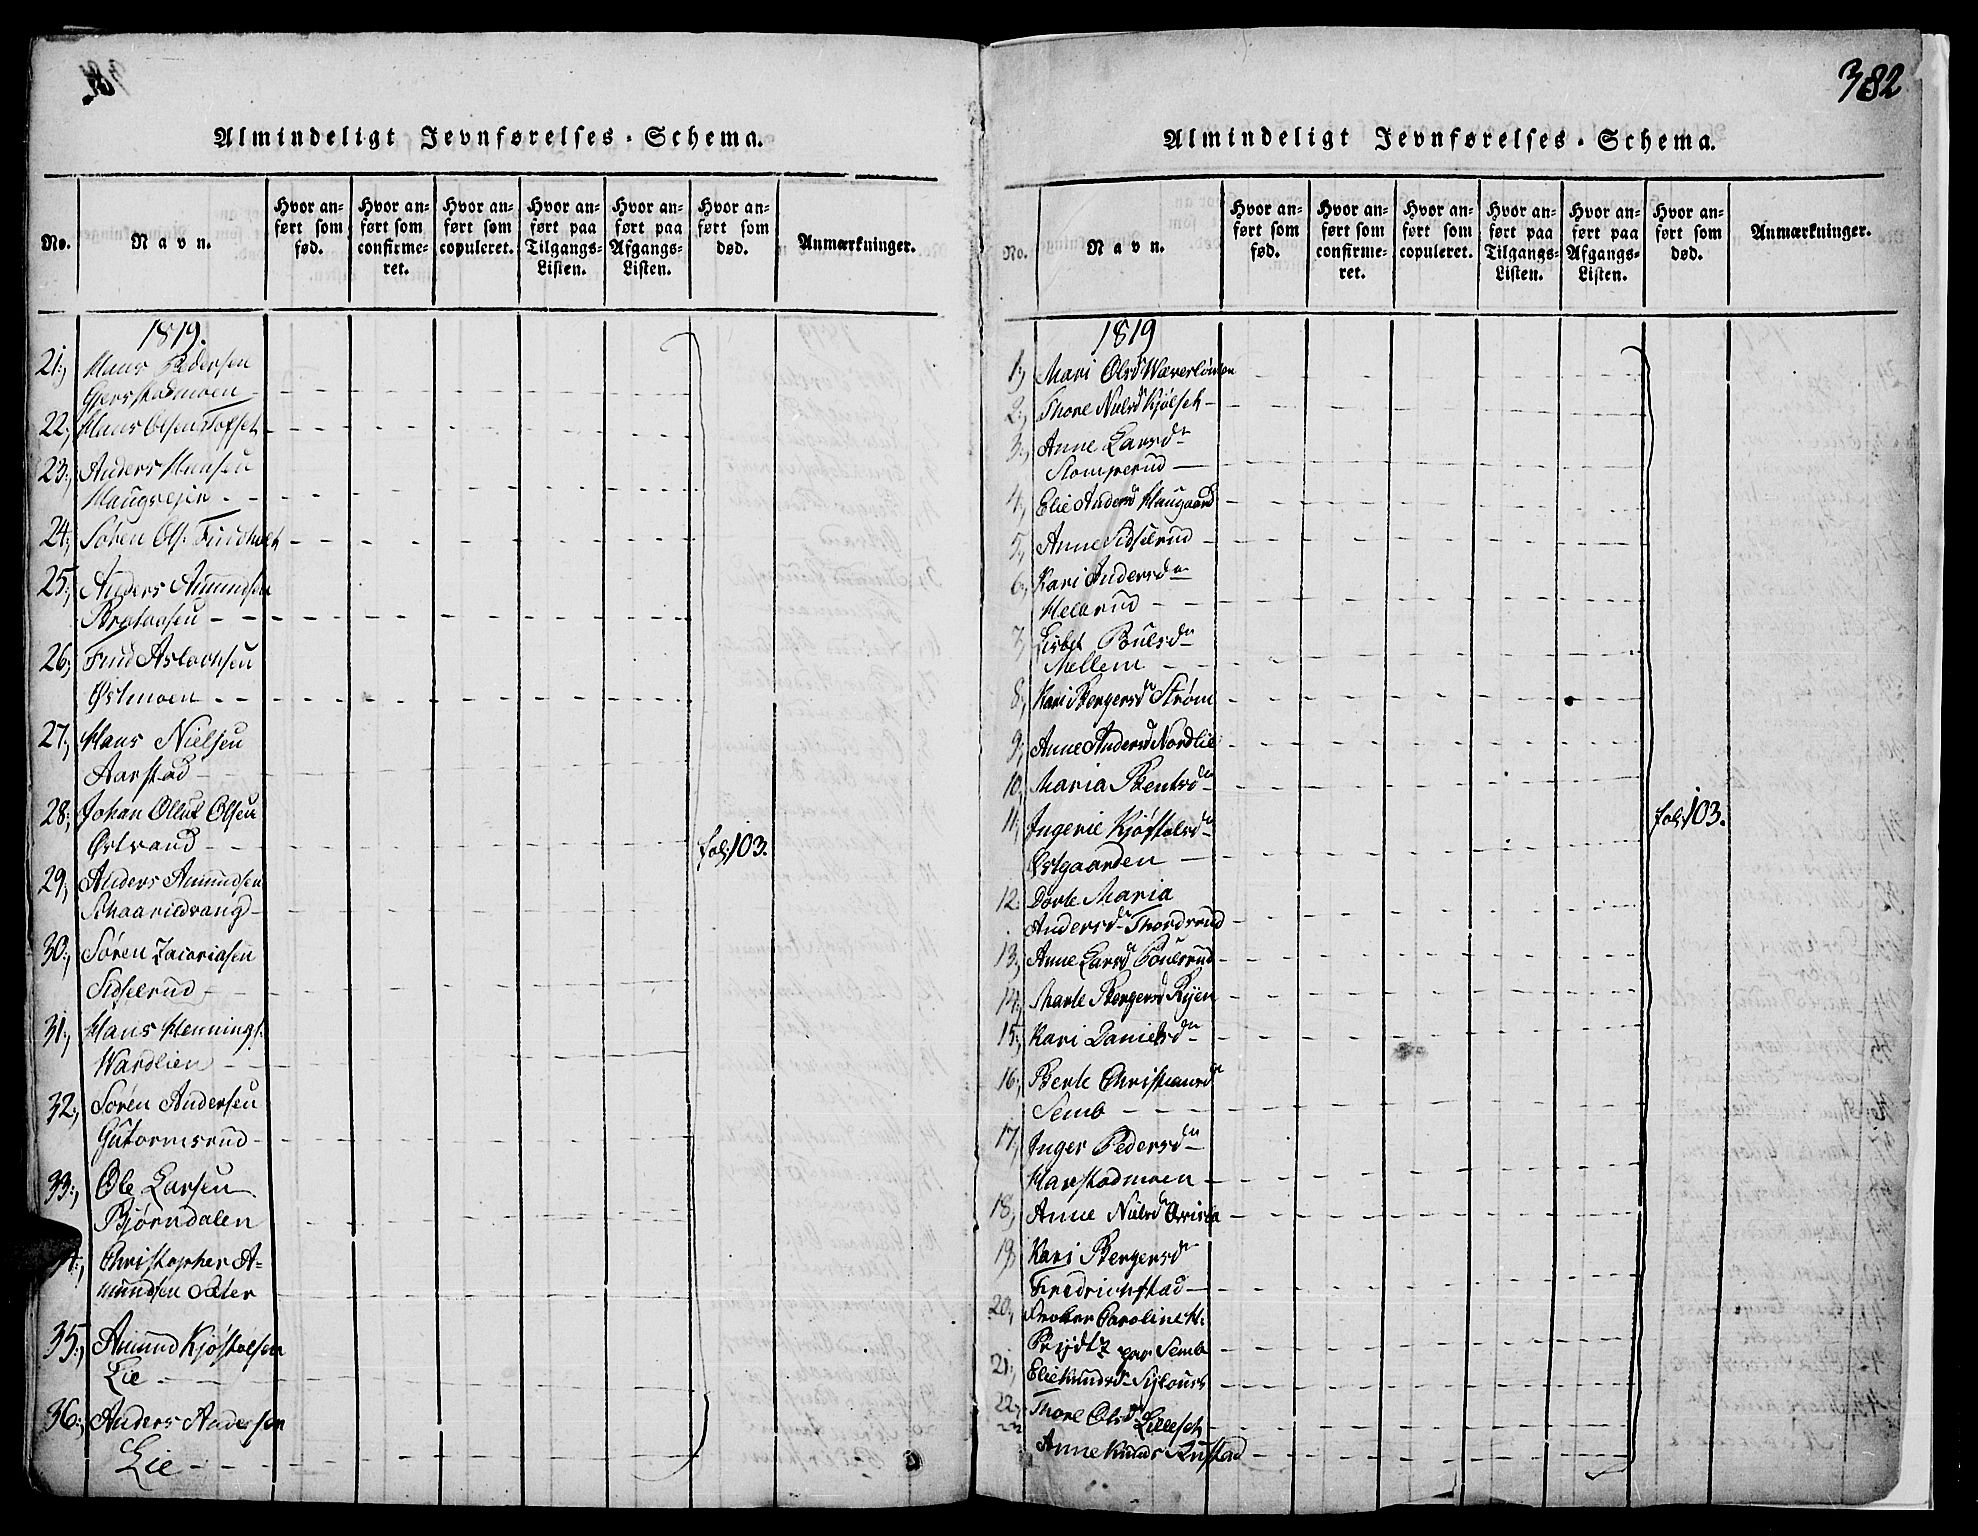 Almindeligt Jevnførelses-Schema.
No.
Navn.
Hvor anført som fød.
Hvor anført som confirmeret.
Hvor anført som copuleret.
Hvor anført paa Tilgangs-Listen.
Hvor anført paa Afgangs-Listen.
Hvor anført som død.
Anmærkninger.
1819.
21, Hans Pedersen
Gjerstadmoen
22, Hans Olsen Tofset
23, Anders Hansen
Haugsejer
24, Søren Ols.
25, Anders Amundsen
26,
Østmoen
27, Hans Nielsen
Aarstad
28, Johan Olsen
Østvand
fol. 103.
29, Anders Amundsen
30, Søren Zacariasen
Sidselrud
31, Hans Hennings.
Wardlien
32, Søren Andersen
Gutormsrud
33, Ole Larsen
Bjørndalen
Christopher A-
mundsen Sæter
35, Amund Kjøstelsen
Lie
36, Anders Andersen
Lie
382
Almindeligt Jevnførelses-Schema.
No.
Navn.
Hvor anført som fød.
Hvor anført som confirmeret.
Hvor anført som copuleret.
Hvor anført paa Tilgangs-Listen.
Hvor anført paa Afgangs-Listen.
Hvor anført som død.
Anmærkninger.
1819
1, Mari Olsd
2, Thore Nielsd Kjølset
3, Anne Larsdr
Stomperud
4, Elie Andersd Haugaard
5, Anne Sidselrud
6, Kari Andersdr
Hellerud
7, Lisbet Poulsdr
Mellem
8, Kari Bergersd Strøm
9, Anne Andersd Nordlie
10, Maria Bentsdr
11, Ingerie Kjøstelsdr
Østgaarden
fol. 103.
12, Dorte Maria
Andersdr Thordsrud
13, Anne Larsd Poulsrud
14, Marte Bergersd Ryen
15, Kari Danielsdr
16, Berte Christiansdr
Semb
17, Inger Pedersdr
Harstadmoen
18, Anne Nielsd
19, Kari Bergersdr
Fredrichstad
20, Caroline M.
Prydtz paa Semb
21, Elie Knudsdr
22, Thore Olsdr Lilleset
23 Anne Knuds Rustad